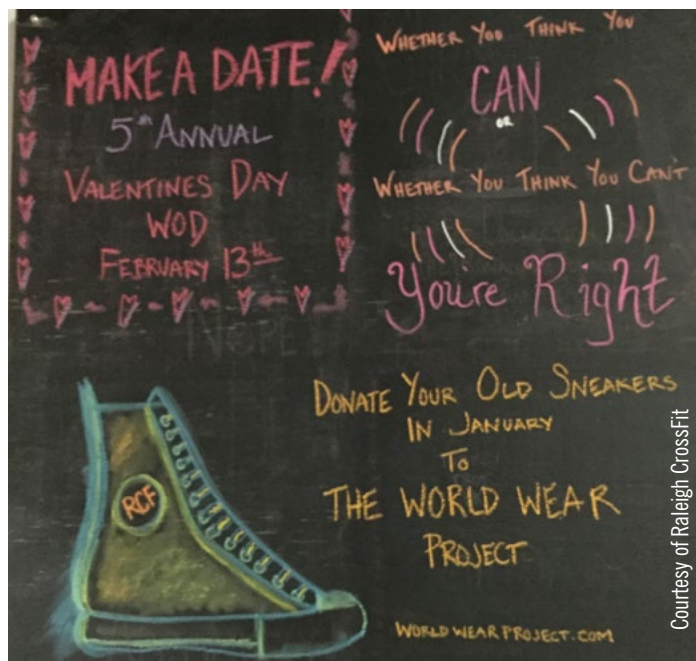 MAKE A DATE!
5th ANNUAL
VALENTINES DAY
WOD
FEBRUARY 13th
WHETHER YOU THINK YOU
CAN
OR
WHETHER YOU THINK YOU CAN'T
You're Right
NOPE
DONATE YOUR OLD SNEAKERS
IN JANUARY
TO
THE WORLD WEAR
PROJECT
WORLDWEARPROJECT.COM
RCF
Courtesy of Raleigh CrossFit